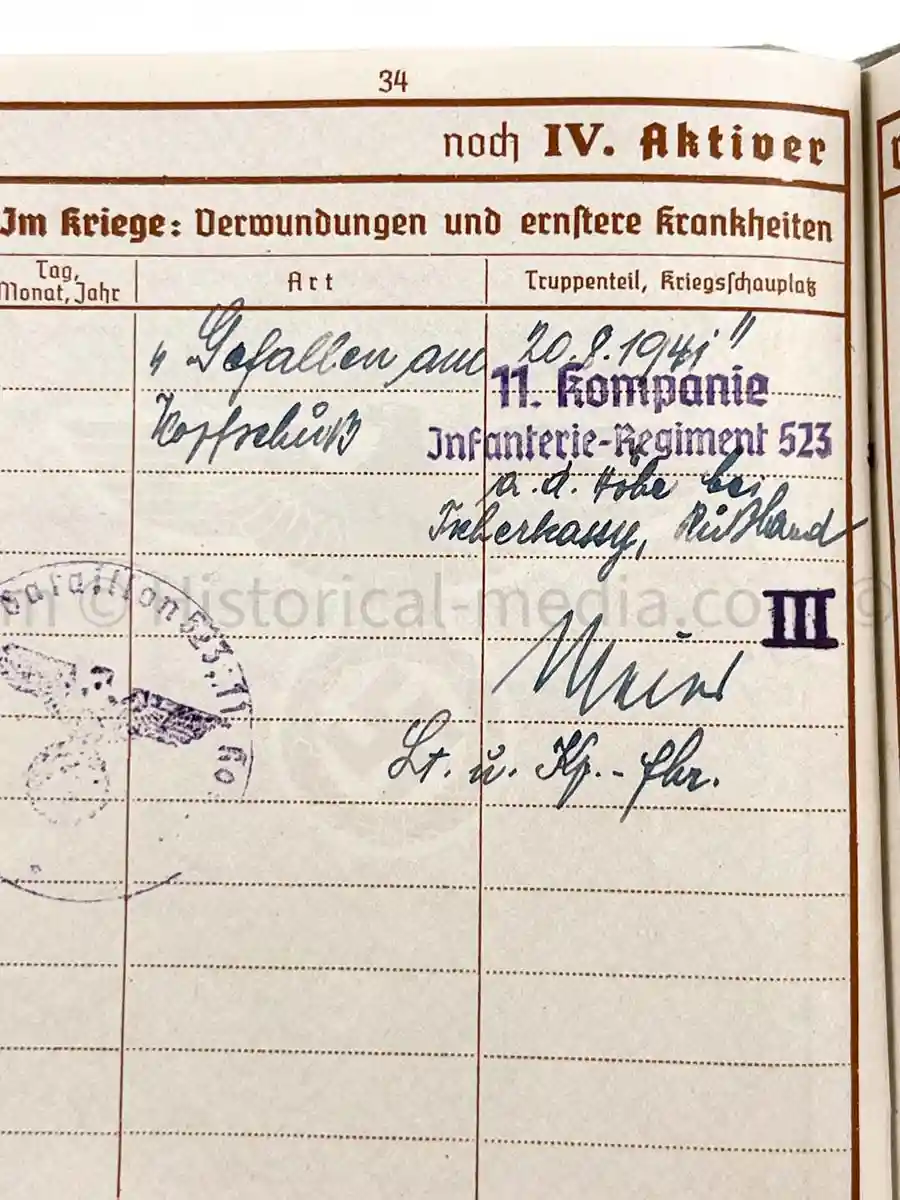 34
noch IV. Aktiver
Im Kriege: Verwundungen und ernstere Krankheiten
Tag,
Monat, Jahr
Art
Truppenteil, Kriegsschauplatz
"Gefallen am 20.8.1941"
11. Kompanie
Kopfschuß
Infanterie-Regiment 523
a. d. Höhe bei
Tscherkassy, Rußland
© Historical-media.co
III
bataillon 523 11 Ko
Meier
Lt. u. Kp.-fhr.